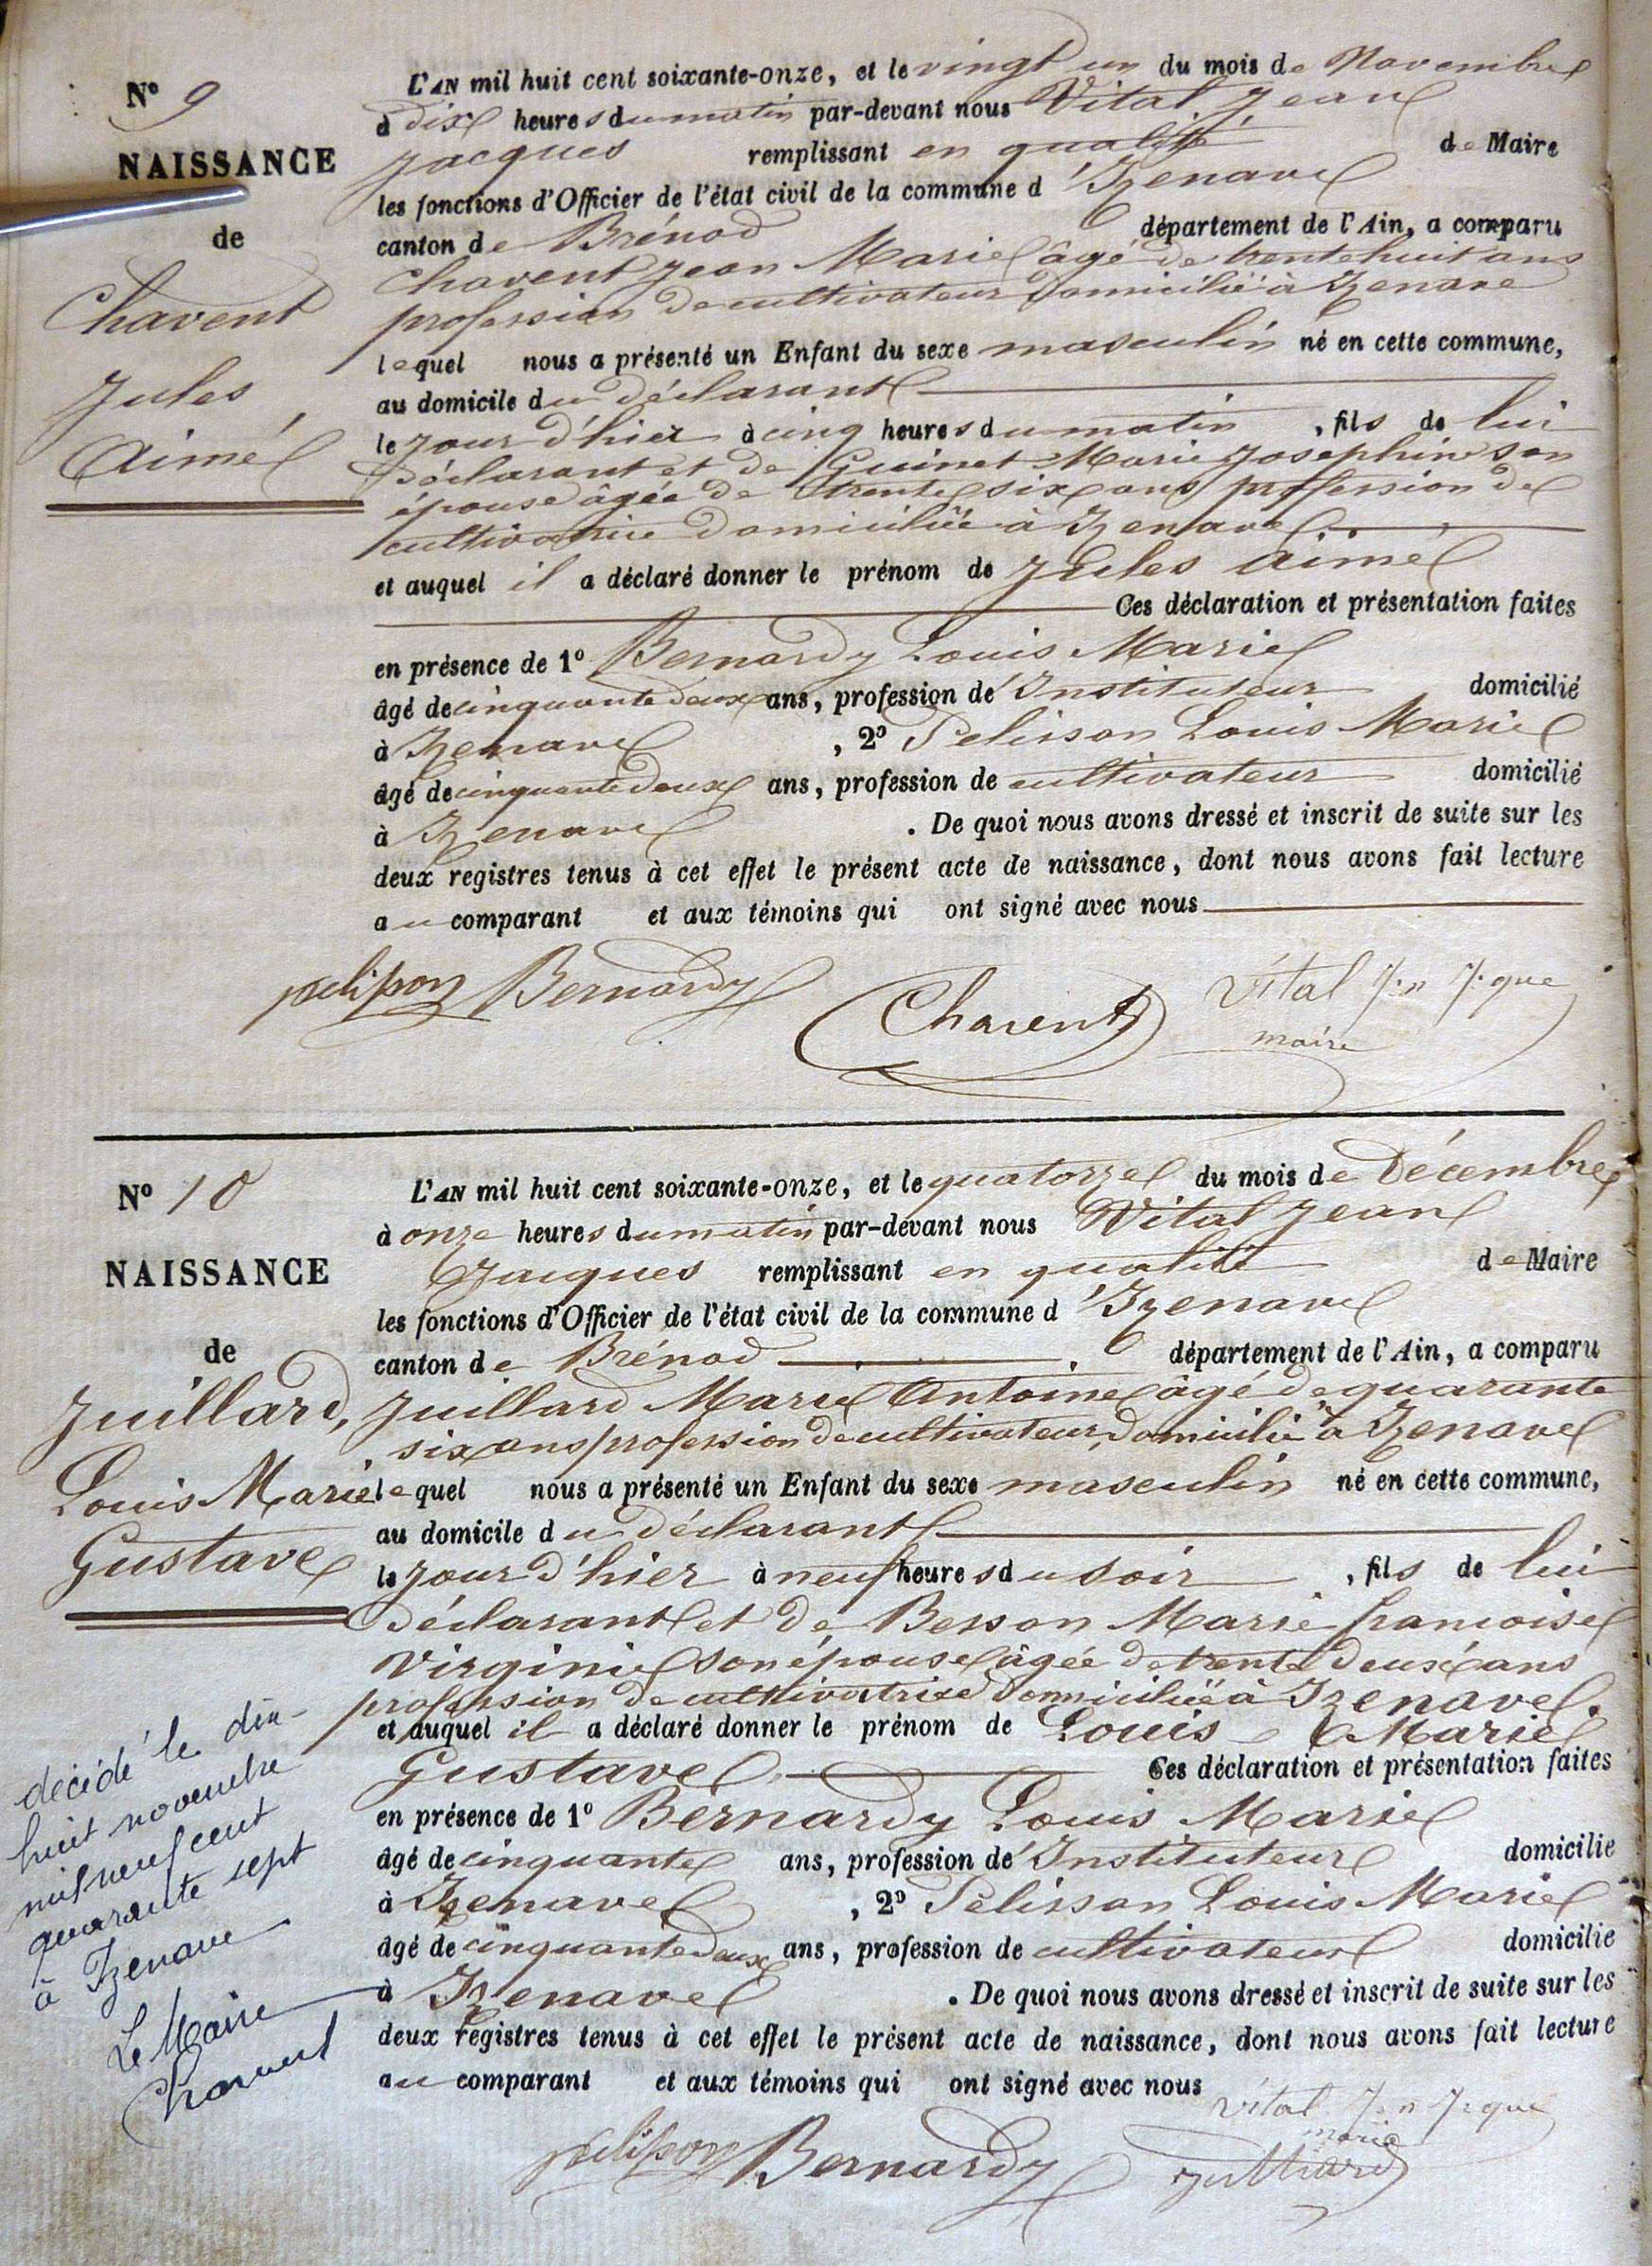 N° 9
NAISSANCE
de
Chavent
Jules
Aimé
L'AN mil huit cent soixante-onze, et le vingt un du mois de Novembre
à dix heures du matin par-devant nous Vital Jean
Jacques remplissant en qualité de Maire
les fonctions d'Officier de l'état civil de la commune d'Izenave
canton de Brénod département de l'Ain, a comparu
Chavent Jean Marie âgé de trente huit ans
profession de cultivateur domicilié à Izenave
lequel nous a présenté un Enfant du sexe masculin né en cette commune,
au domicile du déclarant
le jour d'hier à cinq heures du matin, fils de lui
déclarant et de Guinet Marie Josephine son
épouse âgée de trente six ans profession de
cultivatrice domiciliée à Izenave.
et auquel il a déclaré donner le prénom de Jules Aimé
Ces déclaration et présentation faites
en présence de 1° Bernardy Louis Marie
âgé de cinquante deux ans, profession de Instituteur domicilié
à Izenave, 2° Pelisson Louis Marie
âgé de cinquante deux ans, profession de cultivateur domicilié
à Izenave. De quoi nous avons dressé et inscrit de suite sur les
deux registres tenus à cet effet le présent acte de naissance, dont nous avons fait lecture
au comparant et aux témoins qui ont signé avec nous
pelisson Bernardy Chavent Vital Jn Jque
maire
N° 10
NAISSANCE
de
Juillard,
Louis Marie
Gustave
L'AN mil huit cent soixante-onze, et le quatorze du mois de Décembre
à onze heures du matin par-devant nous Vital Jean
Jacques remplissant en qualité de Maire
les fonctions d'Officier de l'état civil de la commune d'Izenave
canton de Brénod département de l'Ain, a comparu
Juillard Marie Antoine âgé de quarante
six ans profession de cultivateur, domicilié à Izenave
lequel nous a présenté un Enfant du sexe masculin né en cette commune,
au domicile du déclarant
le jour d'hier à neuf heures du soir, fils de lui
déclarant et de Besson Marie francoise
Virginie son épouse âgée de trente deux ans
profession de cultivatrice domiciliée à Izenave.
et auquel il a déclaré donner le prénom de Louis Marie
Gustave Ces déclaration et présentation faites
en présence de 1° Bernardy Louis Marie
âgé de cinquante ans, profession de Instituteur domicilié
à Izenave, 2° Pelisson Louis Marie
âgé de cinquante deux ans, profession de cultivateur domicilié
à Izenave. De quoi nous avons dressé et inscrit de suite sur les
deux registres tenus à cet effet le présent acte de naissance, dont nous avons fait lecture
au comparant et aux témoins qui ont signé avec nous
Vital Jn Jque
maire
pelisson Bernardy Juillard
décédé le dix-
huit novembre
mil neuf cent
quarante sept
à Izenave
Le Maire
Chavent